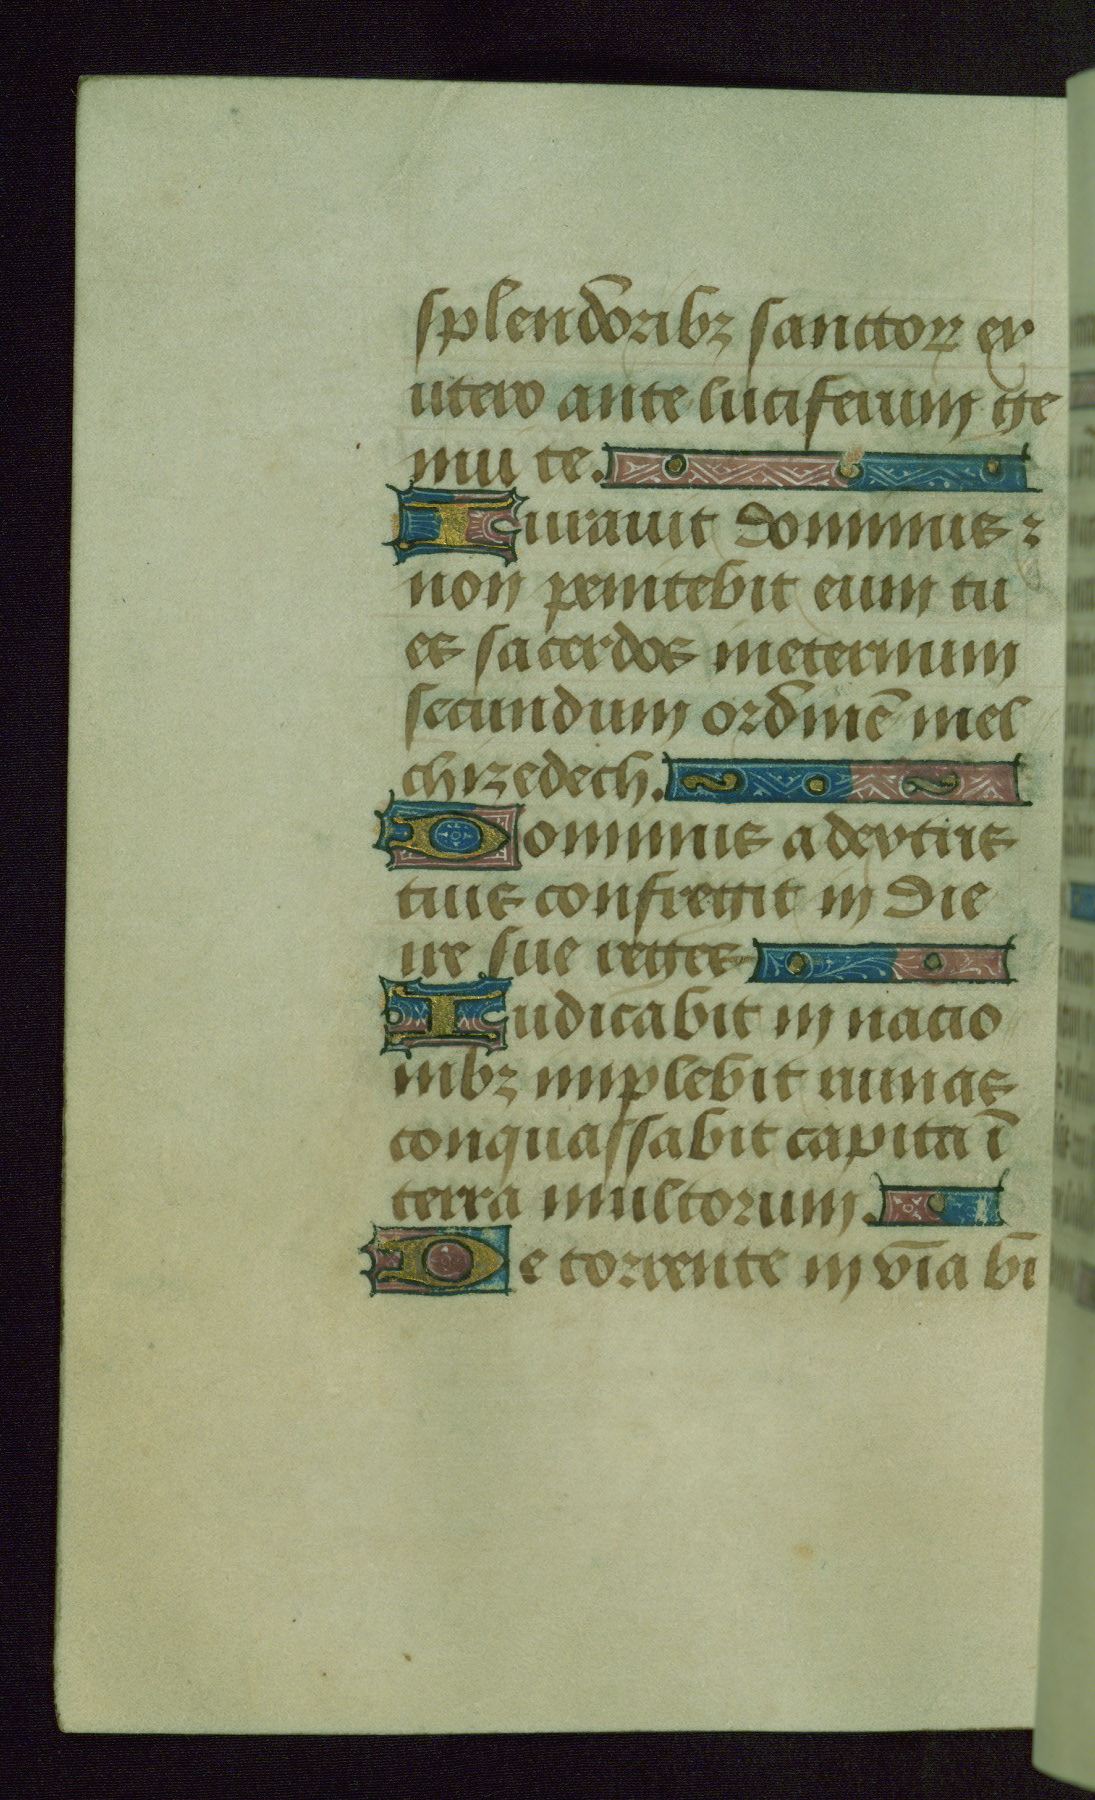 splendoribꝫ sanctoꝝ ex
utero ante luciferum ge
nui te.
Iurauit dominus ⁊
non penitebit eum tu
es sacerdos ineternum
secundum ordinē mel
chizedech.
Dominus a dextris
tuis confregit in die
ire sue reges
Iudicabit in nacio
nibꝫ implebit ruinas
conquassabit capita ī
terra multorum.
De torrente in via bi